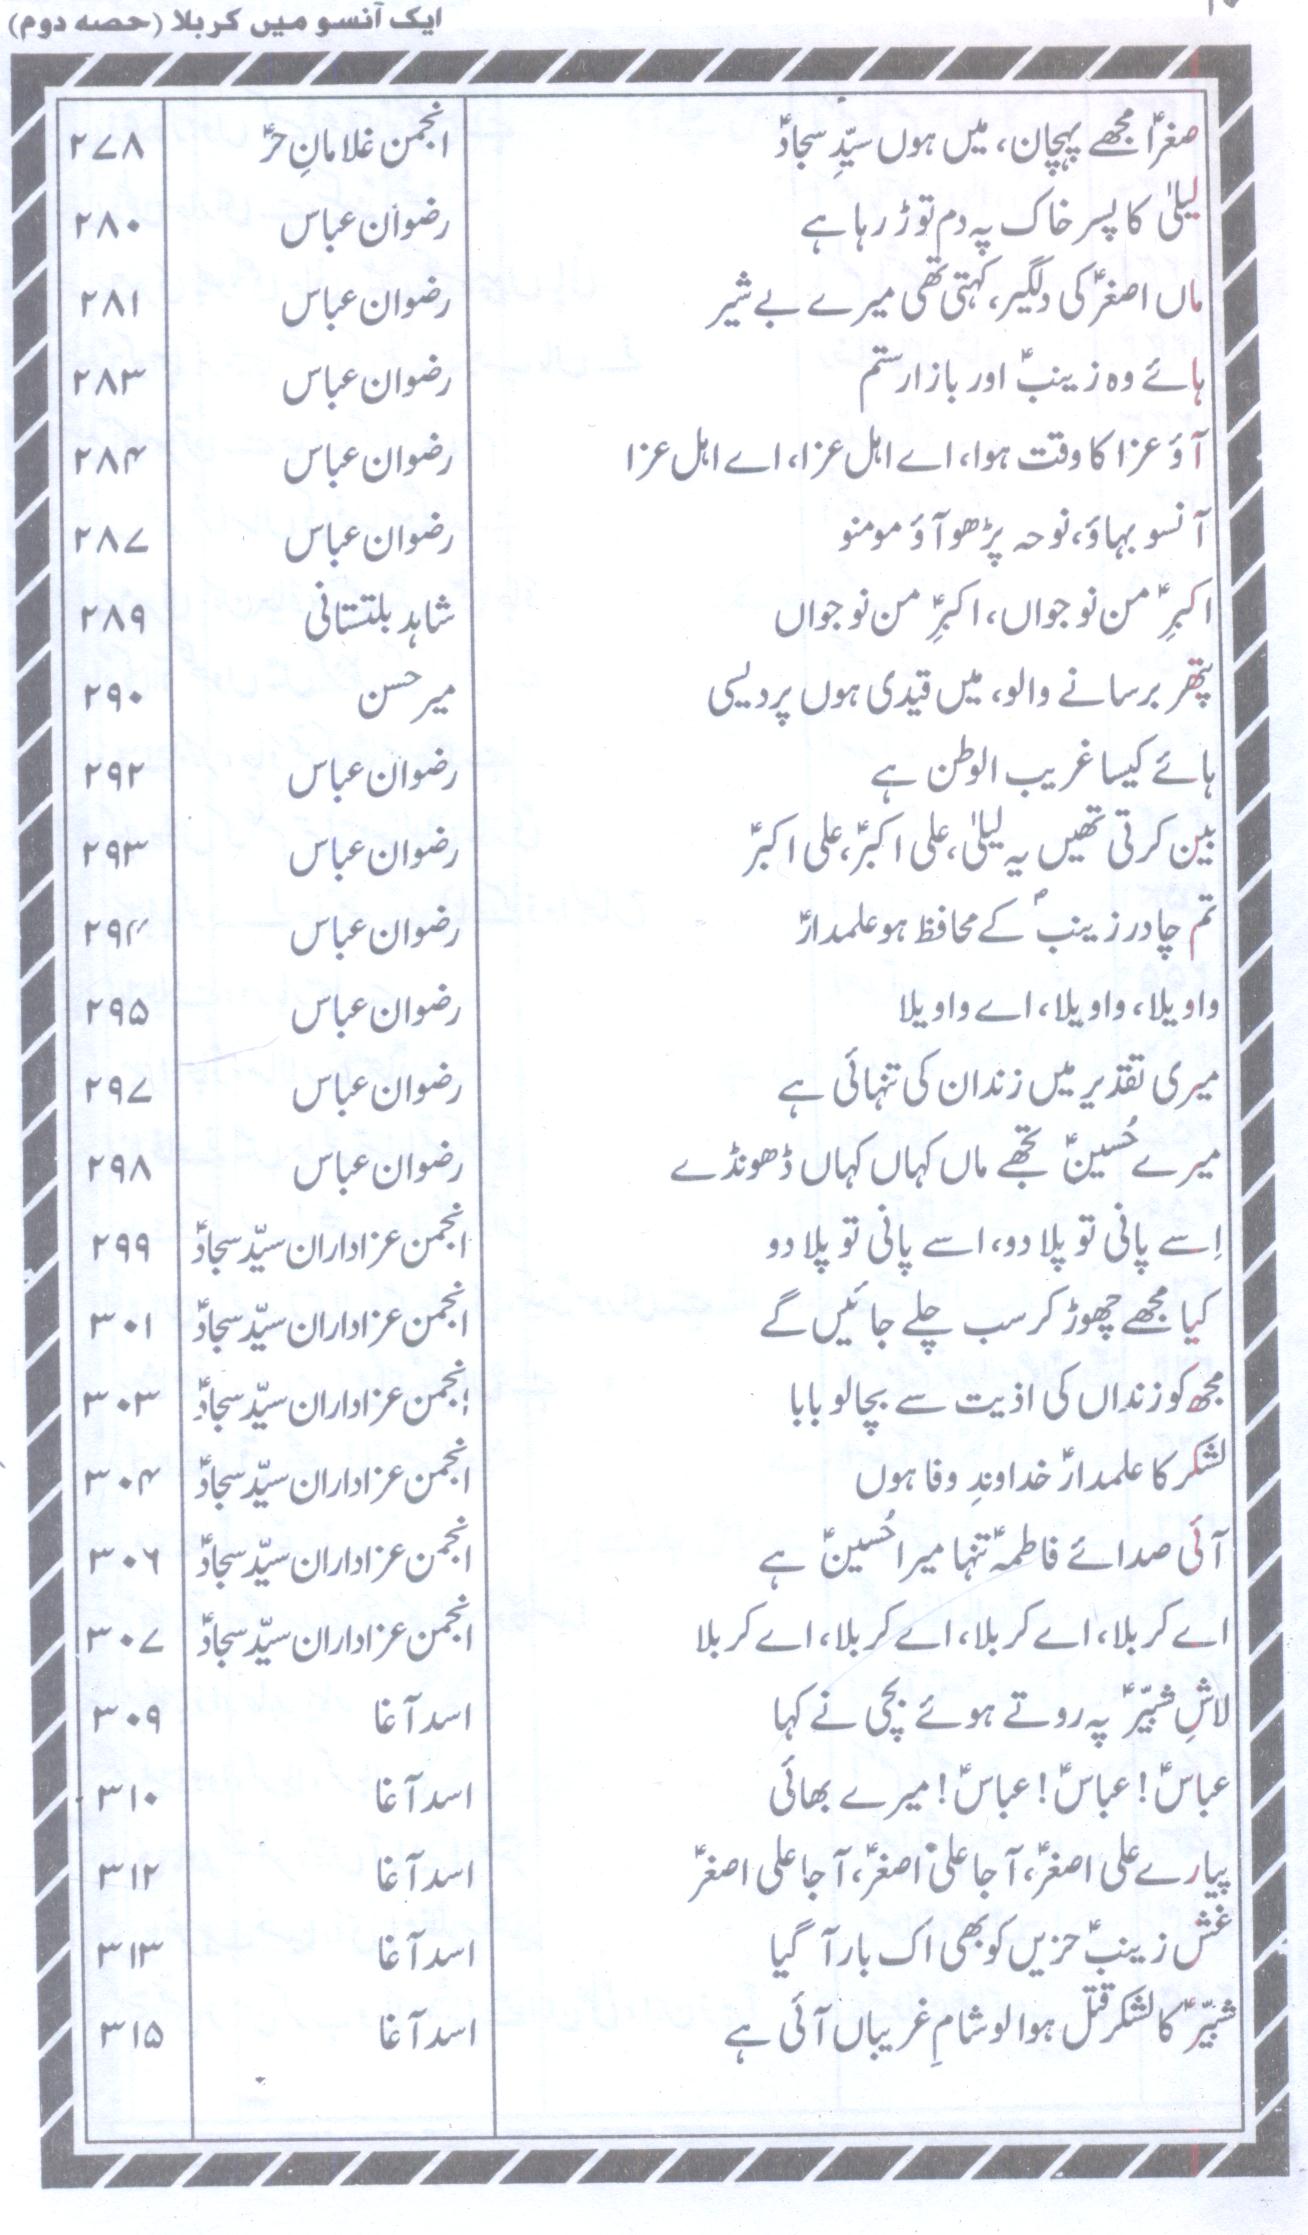 ایک آنسو میں کربلا (حصہ دوم)
صغراؑ مجھے پہچان، میں ہوں سیّدِ سجادؑ انجمن غلامانِ حرؑ ۲۷۸
لیلیٰ کا پسر خاک پہ دم توڑ رہا ہے رضوان عباس ۲۸۰
ماں اصغرؑ کی دلگیر، کہتی تھی میرے بے شیر رضوان عباس ۲۸۱
ہائے وہ زینبؑ اور بازار ستم رضوان عباس ۲۸۳
آؤ عزا کا وقت ہوا، اے اہل عزا، اے اہل عزا رضوان عباس ۲۸۴
آنسو بہاؤ، نوحہ پڑھو آؤ مومنو رضوان عباس ۲۸۷
اکبرِؑ من نوجواں، اکبرِؑ من نوجواں شاہد بلتستانی ۲۸۹
پتھر برسانے والو، میں قیدی ہوں پردیسی میر حسن ۲۹۰
ہائے کیسا غریب الوطن ہے رضوان عباس ۲۹۲
بین کرتی تھیں یہ لیلیٰ، علی اکبرؑ، علی اکبرؑ رضوان عباس ۲۹۳
تم چادر زینبؑ کے محافظ ہو علمدارؑ رضوان عباس ۲۹۴
واویلا، واویلا، اے واویلا رضوان عباس ۲۹۵
میری تقدیر میں زندان کی تنہائی ہے رضوان عباس ۲۹۷
میرے حُسینؑ تجھے ماں کہاں کہاں ڈھونڈے رضوان عباس ۲۹۸
اِسے پانی تو پلا دو، اسے پانی تو پلا دو انجمن عزاداران سیّد سجادؑ ۲۹۹
کیا مجھے چھوڑ کر سب چلے جائیں گے انجمن عزاداران سیّد سجادؑ ۳۰۱
مجھ کو زنداں کی اذیت سے بچا لو بابا انجمن عزاداران سیّد سجادؑ ۳۰۳
لشکر کا علمدارؑ خداوندِ وفا ہوں انجمن عزاداران سیّد سجادؑ ۳۰۴
آئی صدائے فاطمہؑ تنہا میرا حُسینؑ ہے انجمن عزاداران سیّد سجادؑ ۳۰۶
اے کربلا، اے کربلا، اے کربلا، اے کربلا انجمن عزاداران سیّد سجادؑ ۳۰۷
لاشِ شبیّرؑ پہ روتے ہوئے بچی نے کہا اسد آغا ۳۰۹
عباسؑ! عباسؑ! عباسؑ! میرے بھائی اسد آغا ۳۱۰
پیارے علی اصغرؑ، آجا علی اصغرؑ، آجا علی اصغرؑ اسد آغا ۳۱۲
غش زینبؑ حزیں کو بھی اک بار آ گیا اسد آغا ۳۱۳
شبیّرؑ کا لشکر قتل ہوا لو شامِ غریباں آئی ہے اسد آغا ۳۱۵